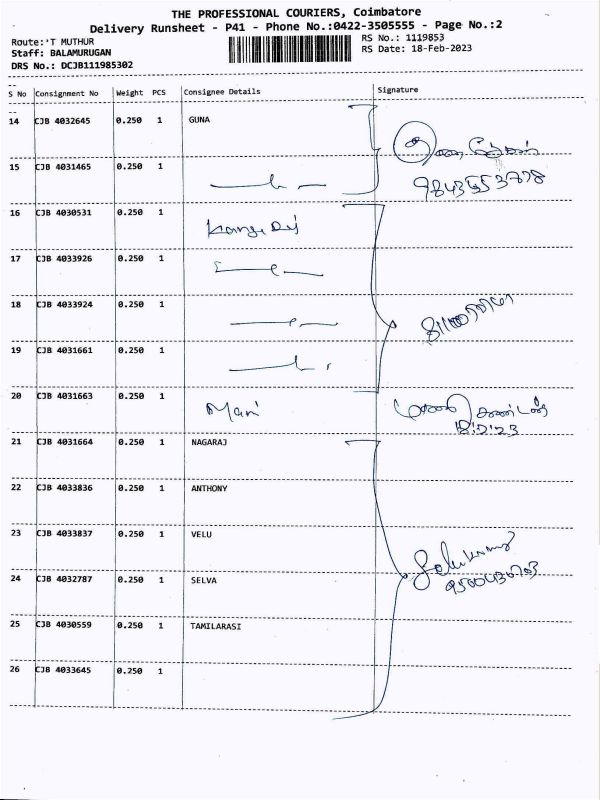 THE PROFESSIONAL COURIERS, Coimbatore
Delivery Runsheet - P41 - Phone No.:0422-3505555 - Page No.:2
Route:'T MUTHUR
RS No.: 1119853
Staff: BALAMURUGAN
RS Date: 18-Feb-2023
DRS No.: DCJB111985302
S No Consignment No Weight PCS Consignee Details Signature
14 CJB 4032645 0.250 1 GUNA
15 CJB 4031465 0.250 1
16 CJB 4030531 0.250 1
17 CJB 4033926 0.250 1
18 CJB 4033924 0.250 1
19 CJB 4031661 0.250 1
20 CJB 4031663 0.250 1 Mani
21 CJB 4031664 0.250 1 NAGARAJ
22 CJB 4033836 0.250 1 ANTHONY
23 CJB 4033837 0.250 1 VELU
24 CJB 4032787 0.250 1 SELVA
25 CJB 4030559 0.250 1 TAMILARASI
26 CJB 4033645 0.250 1